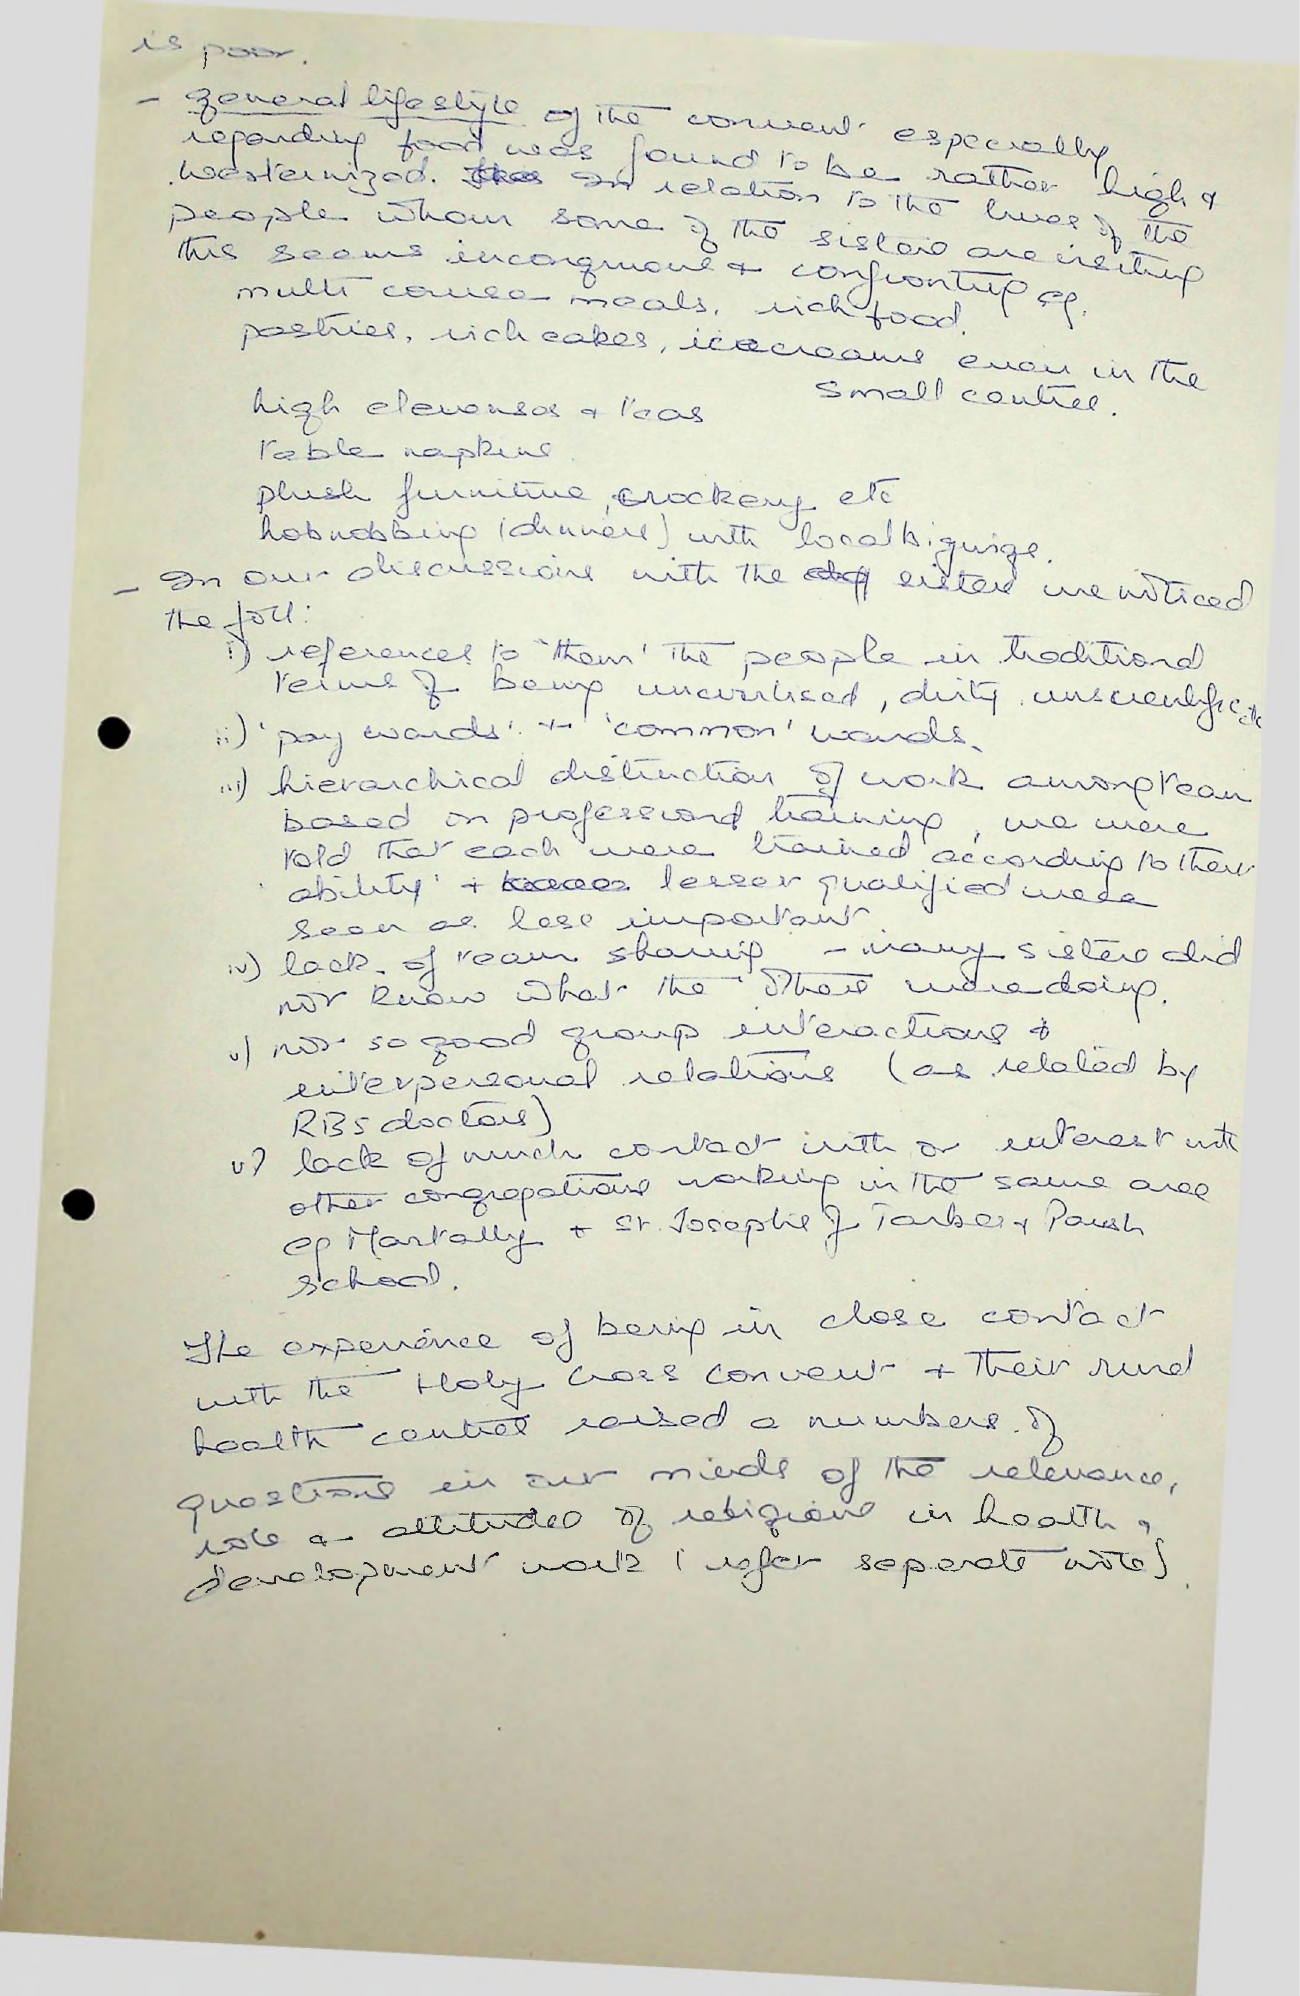 is poor.
- general lifestyle of the convent especially
regarding food was found to be rather high &
westernized. In relation to the lives of the
people whom some of the sisters are visiting
this seems incongruous & confronting eg.
multi course meals, rich food,
pastries, rich cakes, icecreams even in the
small centres.
high elevenses & teas
table napkins
plush furniture, crockery etc
hobnobbing (dinners) with local bigwigs.
- In our discussions with the sisters we noticed
the foll:
i) references to 'them' the people in traditional
terms of being uncivilised, dirty, unscientific etc
ii) 'pay wards' + 'common' wards.
iii) hierarchical distinction of work among team
based on professional training, we were
told that each were trained according to their
'ability' + lesser qualified were
seen as less important
iv) lack of team sharing - many sisters did
not know what the others were doing.
v) not so good group interactions &
interpersonal relations (as related by
RBS doctors)
v) lack of much contact with or interest with
other congregations working in the same area
eg Martally + St. Josephs of Tarbes & Parish
school.
The experience of being in close contact
with the Holy Cross convent + their rural
health centres raised a numbers of
questions in our minds of the relevance,
role & attitudes of religious in health &
development work (refer seperate note).